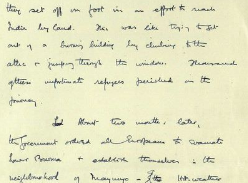 they set off on foot in an effort to reach
India by land. This was like trying to get
out of a burning building by climbing to the
attic & jumping through the window. Thousands
of these unfortunate refugees perished on the
journey.
About two months later,
the Government ordered all Europeans to evacuate
lower Burma & establish themselves in the
neighbourhood of Maymyo - the hot weather